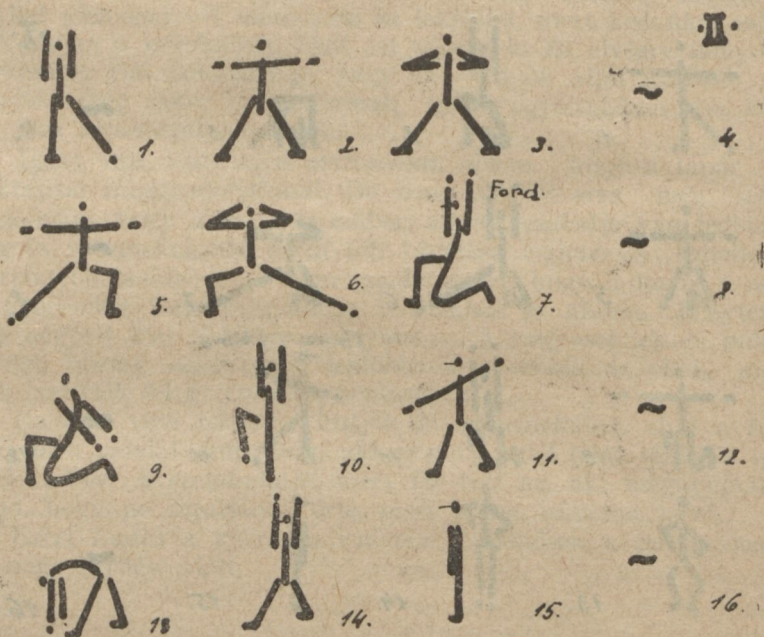 ·II·
1. 2. 3. ~ 4.
Ford.
5. 6. 7. ~ 8.
9. 10. 11. ~ 12.
13 14. 15. ~ 16.